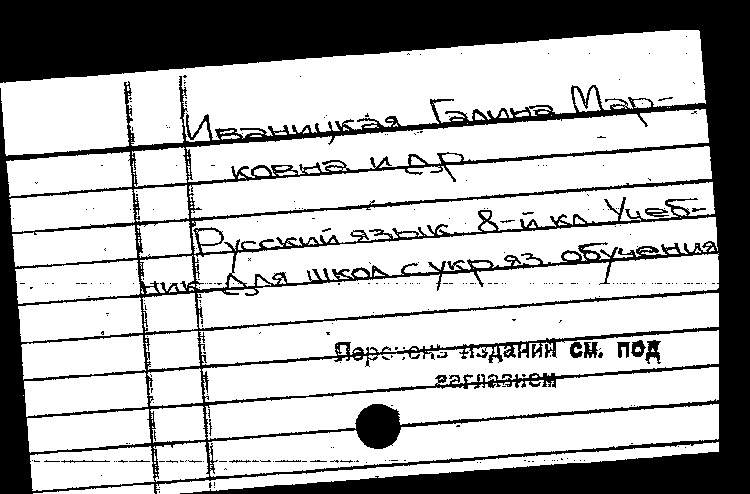 Иваницкая Галина Мар-
ковна и др.
Русский язык. 8-й кл. Учеб-
ник для школ с укр. яз. обучения
Перечень изданий см. под
заглавием